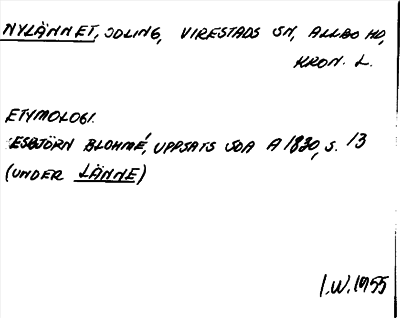 NYLÄNNET, ODLING, VIRESTADS SN, ALLBO HD,
KRON. L.
ETYMOLOGI.
ESBJÖRN BLOHMÉ, UPPSATS SOA A 1830, S. 13
(UNDER LÄNNE)
I.W. 1955